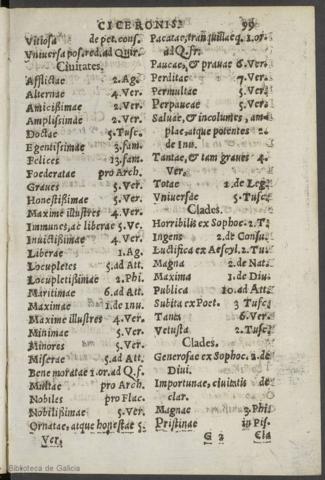 CICERONIS. 99
Vitiosa de pet. conf.
Vniuersa pos. red. ad Quir.
Ciuitates.
Afflictae 2. Ag.
Alternae 4. Ver.
Amicißimae 2. Ver.
Amplißimae 2. Ver.
Doctae 5. Tusc.
Egentißimae 3. fam.
Felices 13. fam.
Foederatae pro Arch.
Graues 5. Ver.
Honestißimae 5. Ver.
Maxime illustres 4. Ver.
Immunes, ac liberae 5. Ve.
Inuictißimae 4. Ver.
Liberae 1. Ag.
Locupletes 5. ad Att.
Locupletißimae 2. Phi.
Maritimae 6. ad Att.
Maximae 1. de inu.
Maxime illustres 4. Ver.
Minimae 5. Ver.
Minores 5. Ver.
Miserae 5. ad Att.
Bene moratae 1. or. ad Q. f.
Multae pro Arch.
Nobiles pro Flac.
Nobilißimae 5. Ver.
Ornatae, atque honestae 5.
Ver.
Pacatae, tranquillaeq. 1. or.
ad Q. fr.
Paucae, & prauae 6. Ver.
Perditae 7. Ver.
Permultae 5. Ver.
Perpaucae 5. Ver.
Saluae, & incolumes, am-
plae, atque potentes 2.
de Inu.
Tantae, & tam graues 4.
Ver.
Totae 1. de Leg.
Vniuersae 5. Tusc.
Clades.
Horribilis ex Sophoc. 2. T.
Ingens 2. de Consu.
Luctifica ex Aescyl. 2. Tu.
Magna 2. de Nat.
Maxima 1. de Diu.
Publica 10. ad Att.
Subita ex Poet. 3 Tusc.
Tanta 6. Ver.
Vetusta 2. Tusc.
Clades.
Generosae ex Sophoc. 2. de
Diui.
Importunae, ciuitatis de
clar.
Magnae 3. Phi
Pristinae in Pis.
G 2 Cla
Biblioteca de Galicia